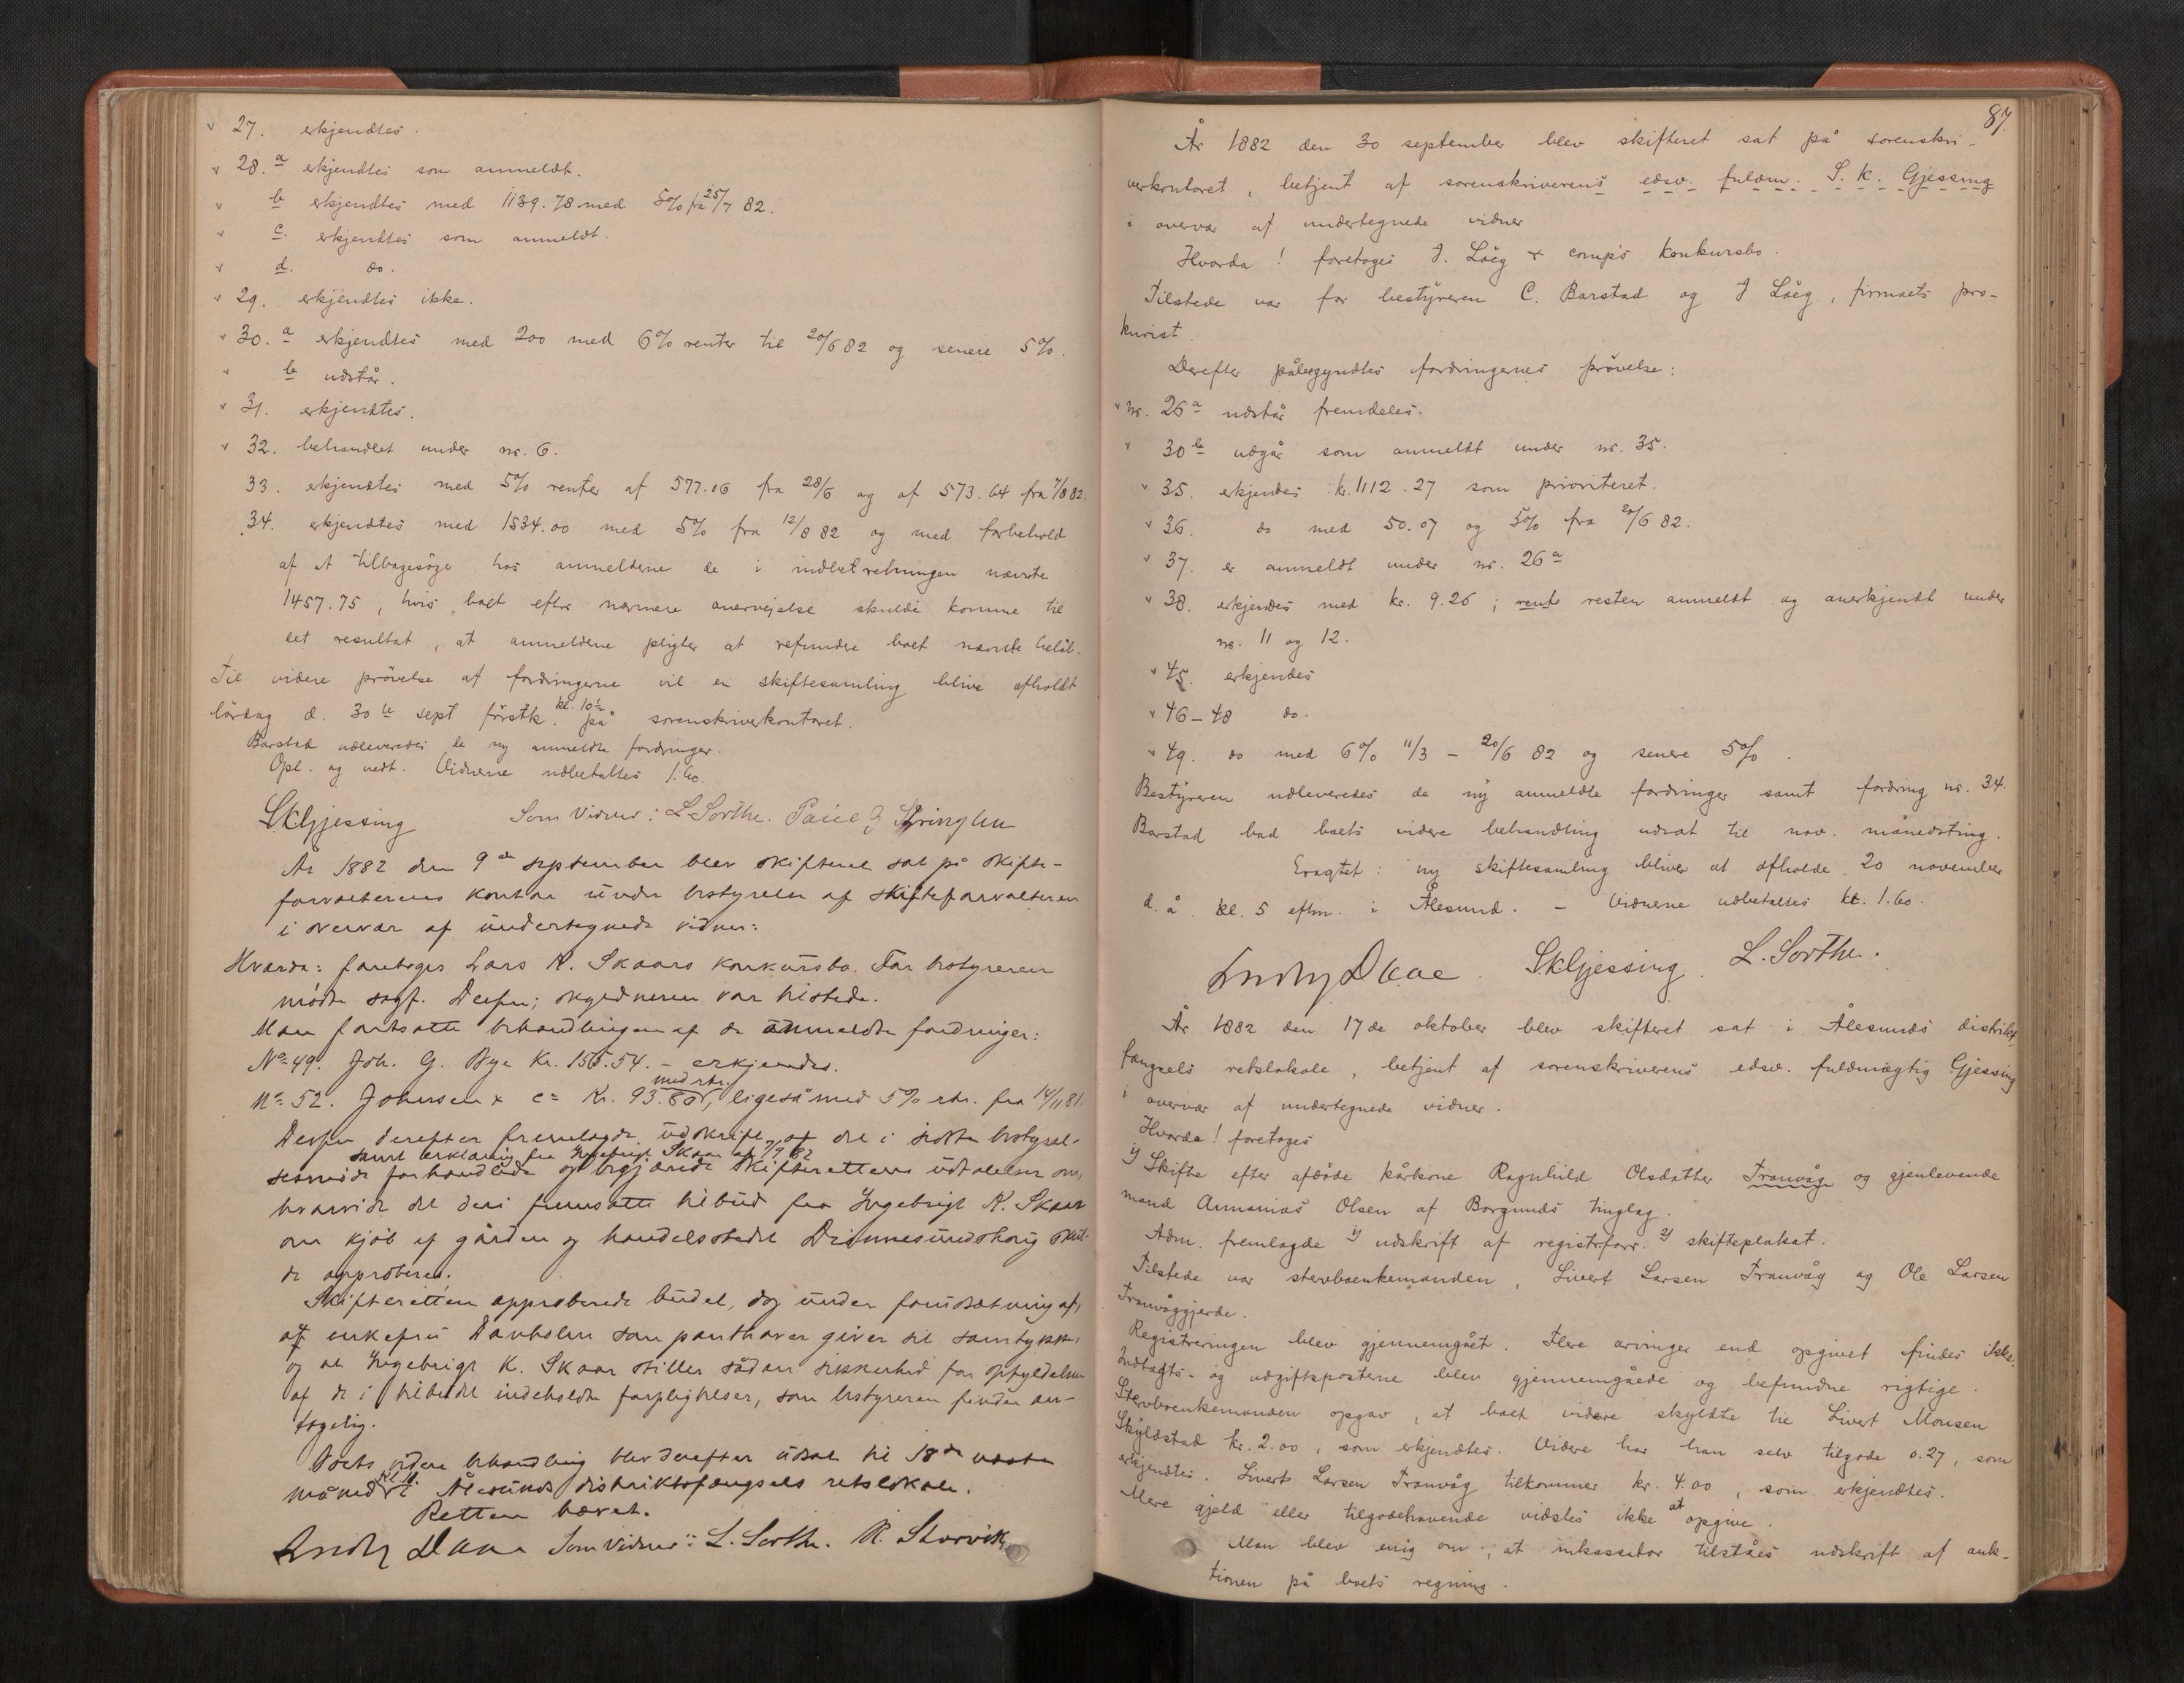 v 27. erkjendtes.
v 28. a erkjendtes som anmeldt.
v b erkjendtes med 1139.78 med 5% fra 25/7 82.
v c. erkjendtes som anmeldt.
v d. do.
v 29. erkjendtes ikke.
v 30. a erkjendtes med 200 med 6% renter til 20/6 82 og senere 5%.
v b udstår.
v 31. erkjendtes.
v 32. behandlet under nr. 6.
33. erkjendtes med 5% renter af 577.06 fra 28/6 og af 573.64 fra 7/8 82.
34. erkjendtes med 1534.00 med 5% fra 12/8 82 og med forbehold
af at tilbagesøge hos anmelderne de i indberetningen nævnte
1457.75, hvis boet efter nærmere overvejelse skulde komme til
det resultat, at anmelderne pligter at refundere boet nævnte beløb.
Til videre prøvelse af fordringerne vil en skiftesamling blive afholdt
lørdag d. 30te sept førstk. kl. 10½ på sorenskriverkontoret.
Barstad udleveredes de ny anmeldte fordringer.
Opl. og vedt. Vidnerne udbetaltes 1.60.
SKGjessing Som Vidner: L. Sorthe.
År 1882 den 9de september blev skifteret sat på skifte-
forvalterens kontor under bestyrelse af skifteforvalteren
i overvær af undertegnede vidner:
Hvorda: foretoges Lars K. Skaars konkursbo. For bestyreren
mødte sagf. ; skyldneren var tilstede.
Man fortsatte behandlingen af de anmeldte fordringer:
No 49. Joh. G. Bye Kr. 155.54. – erkjendes.
No 52. Johnsen & Co Kr. 93.80 med rtr., ligeså med 5% rtr. fra 14/11 81.
derefter fremlagde udskrift af det i sidste bestyrel-
sesmøde forhandlede samt erklæring fra Ingebrigt Skaar af 7/9 82 og begjærede skifterettens udtalelse om,
hvorvidt det deri fremsatte tilbud fra Ingebrigt K. Skaar
om kjøb af gården og handelsstedet skul-
de approberes.
Skifteretten approberede budet, dog under forudsætning af,
at enkefru som panthaver giver sit samtykke,
og at Ingebrigt K. Skaar stiller sådan sikkerhed for opfyldelsen
af de i tilbudet indeholdte forpligtelser, som bestyreren finder an-
tagelig.
Boets videre behandling blev derefter udsat til 18de næste
måned kl. 11. i Ålesunds distriktsfængsels retslokale.
Retten hævet.
Som Vidner: L. Sorthe. K. Storvik
87.
År 1882 den 30 september blev skifteret sat på sorenskri-
verkontoret, betjent af sorenskriverens edsv. fuldm. S. K. Gjessing
i overvær af undertegnede vidner
Hvorda! foretoges J. Låeg & comp's konkursbo.
Tilstede var for bestyreren C. Barstad og J Låeg, firmaets pro-
kurist.
Derefter påbegyndtes fordringernes prøvelse:
v nr. 26 a udstår fremdeles.
v 30 b udgår som anmeldt under nr. 35.
v 35. erkjendes kr. 1112.27 som prioriteret.
v 36. do med 50.07 og 5% fra 20/6 82.
v 37. er anmeldt under nr. 26 a
v 38. erkjendes med kr. 9.26; rente resten anmeldt og anerkjendt under
nr. 11 og 12.
v 45. erkjendes
v 46–48 do.
v 49. do med 6% 11/3 – 20/6 82 og senere 5%.
Bestyreren udleveredes de ny anmeldte fordringer samt fordring nr. 34.
Barstad bad boets videre behandling udsat til nov. månedsting.
Eragtet: ny skiftesamling bliver at afholde 20 november
d. å. kl. 5 eftm. i Ålesund. – Vidnerne udbetaltes kr. 1.60.
SKGjessing. L. Sorthe.
År 1882 den 17de oktober blev skifteret sat i Ålesunds distrikts
fængsels retslokale, betjent af sorenskriverens edsv. fuldmægtig Gjessing
i overvær af undertegnede vidner.
Hvorda! foretoges
1) Skifte efter afdøde kårkone Ragnhild Olsdatter Tranvåg og gjenlevende
mand Annanias Olsen af Borgunds tinglag.
Adm. fremlagde 1) udskrift af registrforr. 2) skifteplakat.
Tilstede var stervboenkemanden, Sivert Larsen Tranvåg og Ole Larsen
Tranvåggjerde.
Registreringen blev gjennemgået. Flere arvinger end opgivet findes ikke.
Indtægts- og udgiftsposterne blev gjennemgåede og befundne rigtige.
Stervboenkemanden opgav, at boet videre skyldte til Sivert Monsen
Skyldstad kr. 2.00, som erkjendtes. Videre har han selv tilgode 0.27, som
erkjendtes. Siverts Larsen Tranvåg tilkommer kr. 4.00, som erkjendtes.
Mere gjeld eller tilgodehavende vidstes ikke at opgive.
Man blev enig om, at inkassator tilståes udskrift af auk-
tionen på boets regning.